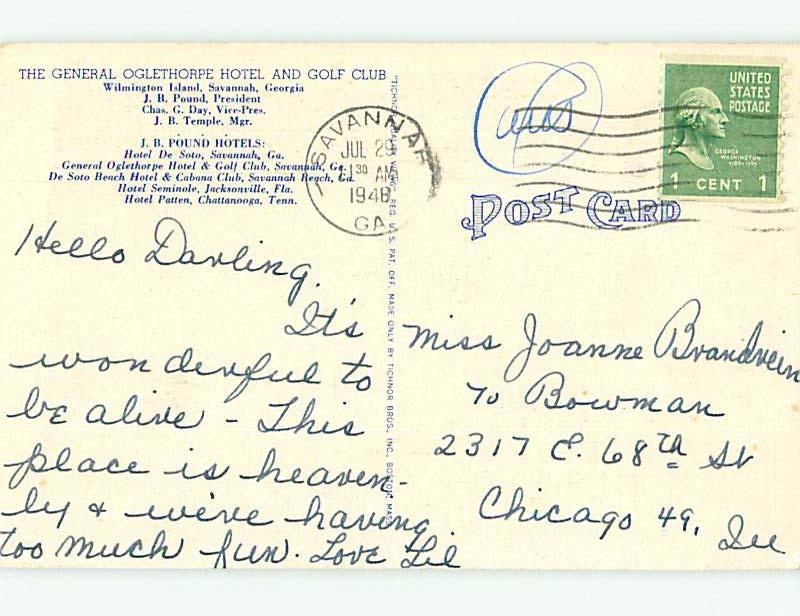 THE GENERAL OGLETHORPE HOTEL AND GOLF CLUB
Wilmington Island, Savannah, Georgia
J. B. Pound, President
Chas. G. Day, Vice-Pres.
J. B. Temple, Mgr.
J. B. POUND HOTELS:
Hotel De Soto, Savannah, Ga.
General Oglethorpe Hotel & Golf Club, Savannah, Ga.
De Soto Beach Hotel & Cabana Club, Savannah Beach, Ga.
Hotel Seminole, Jacksonville, Fla.
Hotel Patten, Chattanooga, Tenn.
SAVANNAH
JUL 29
30 AM
1948
GA.
UNITED
STATES
POSTAGE
GEORGE
WASHINGTON
1 CENT 1
POST CARD
REG. U. S. PAT. OFF. MADE ONLY BY TICHNOR BROS., INC. BOSTON, MASS.
Hello Darling,
It's
wonderful to
be alive - This
place is heaven-
ly & we're having
too much fun. Love Lil
Miss Joanne Brandwein
% Bowman
2317 E. 68th St
Chicago 49, Ill